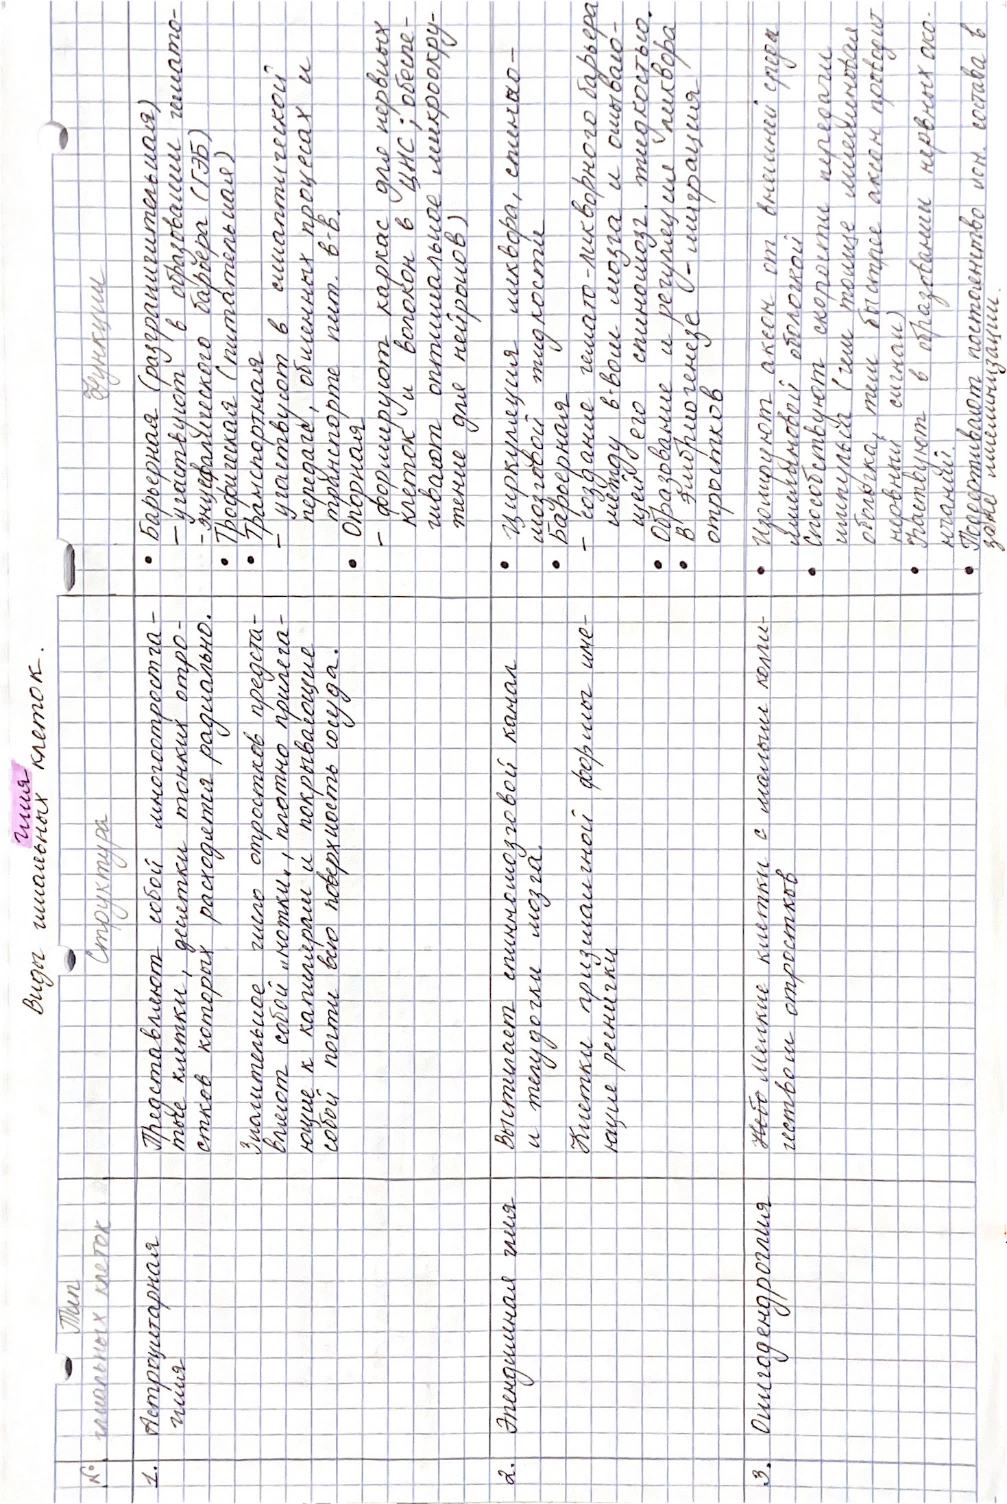 глия
Виды глиальных клеток.
№ Тип
глиальных клеток
Структура
Функции
1. Астроцитарная
глия
Представляют собой многоотростча-
тые клетки, десятки тонких отро-
стков которых расходятся радиально.
Значительное число отростков предста-
вляют собой „ножки“, плотно прилега-
ющие к капилярам и покрывающие
собой почти всю поверхность сосуда.
• Барьерная (разграничительная)
– участвуют в образовании гемато-
-энцефалического барьера (ГЭБ)
• Трофическая (питательная)
• Транспортная
– участвуют в синаптической
передаче, обменных процесах и
транспорте пит. в-в.
• Опорная
– формируют каркас для нервных
клеток и волокон в ЦНС; обеспе-
чивают оптимальное микроокру-
жение для нейронов)
2. Эпендимная глия
Выстилает спинномозговой канал
и желудочки мозга.
Клетки призматичной формы име-
ющие реснички
• Циркуляция ликвора, спинно-
мозговой жидкости
• Барьерная
– создание гемато-ликворного барьера
между в-вом мозга и омываю-
щей его спинномозг. жидкостью.
• Образование и регуляция ликвора
• В эмбриогенезе (– миграция
отростков
3. Олигодендроглия
Мелкие клетки с малым коли-
чеством отростков
• Изолируют аксон от внешней среды
миелиновой оболочкой
• Способствуют скорости передачи
импульса (чем толще миелиновая
оболочка, тем быстрее аксон проводит
нервный сигнал)
• Участвуют в образовании нервных око-
нчаний
• Поддерживают постоянство ион. состава в
зоне миелинизации.